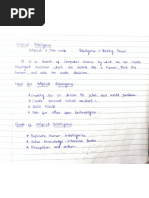 Artificial Intelligence
Artificial → Man-made Intelligence → Thinking Power
It is a branch of Computer Science by which we can create
intelligent machines which can behave like a human, think like
human and able to make decisions.
Need for Artificial Intelligence
to solve real world problems
Create personal virtual assistant
Goals of Artificial Intelligence
Replicate human intelligence
Solve knowledge-intensive tasks
Perception and action